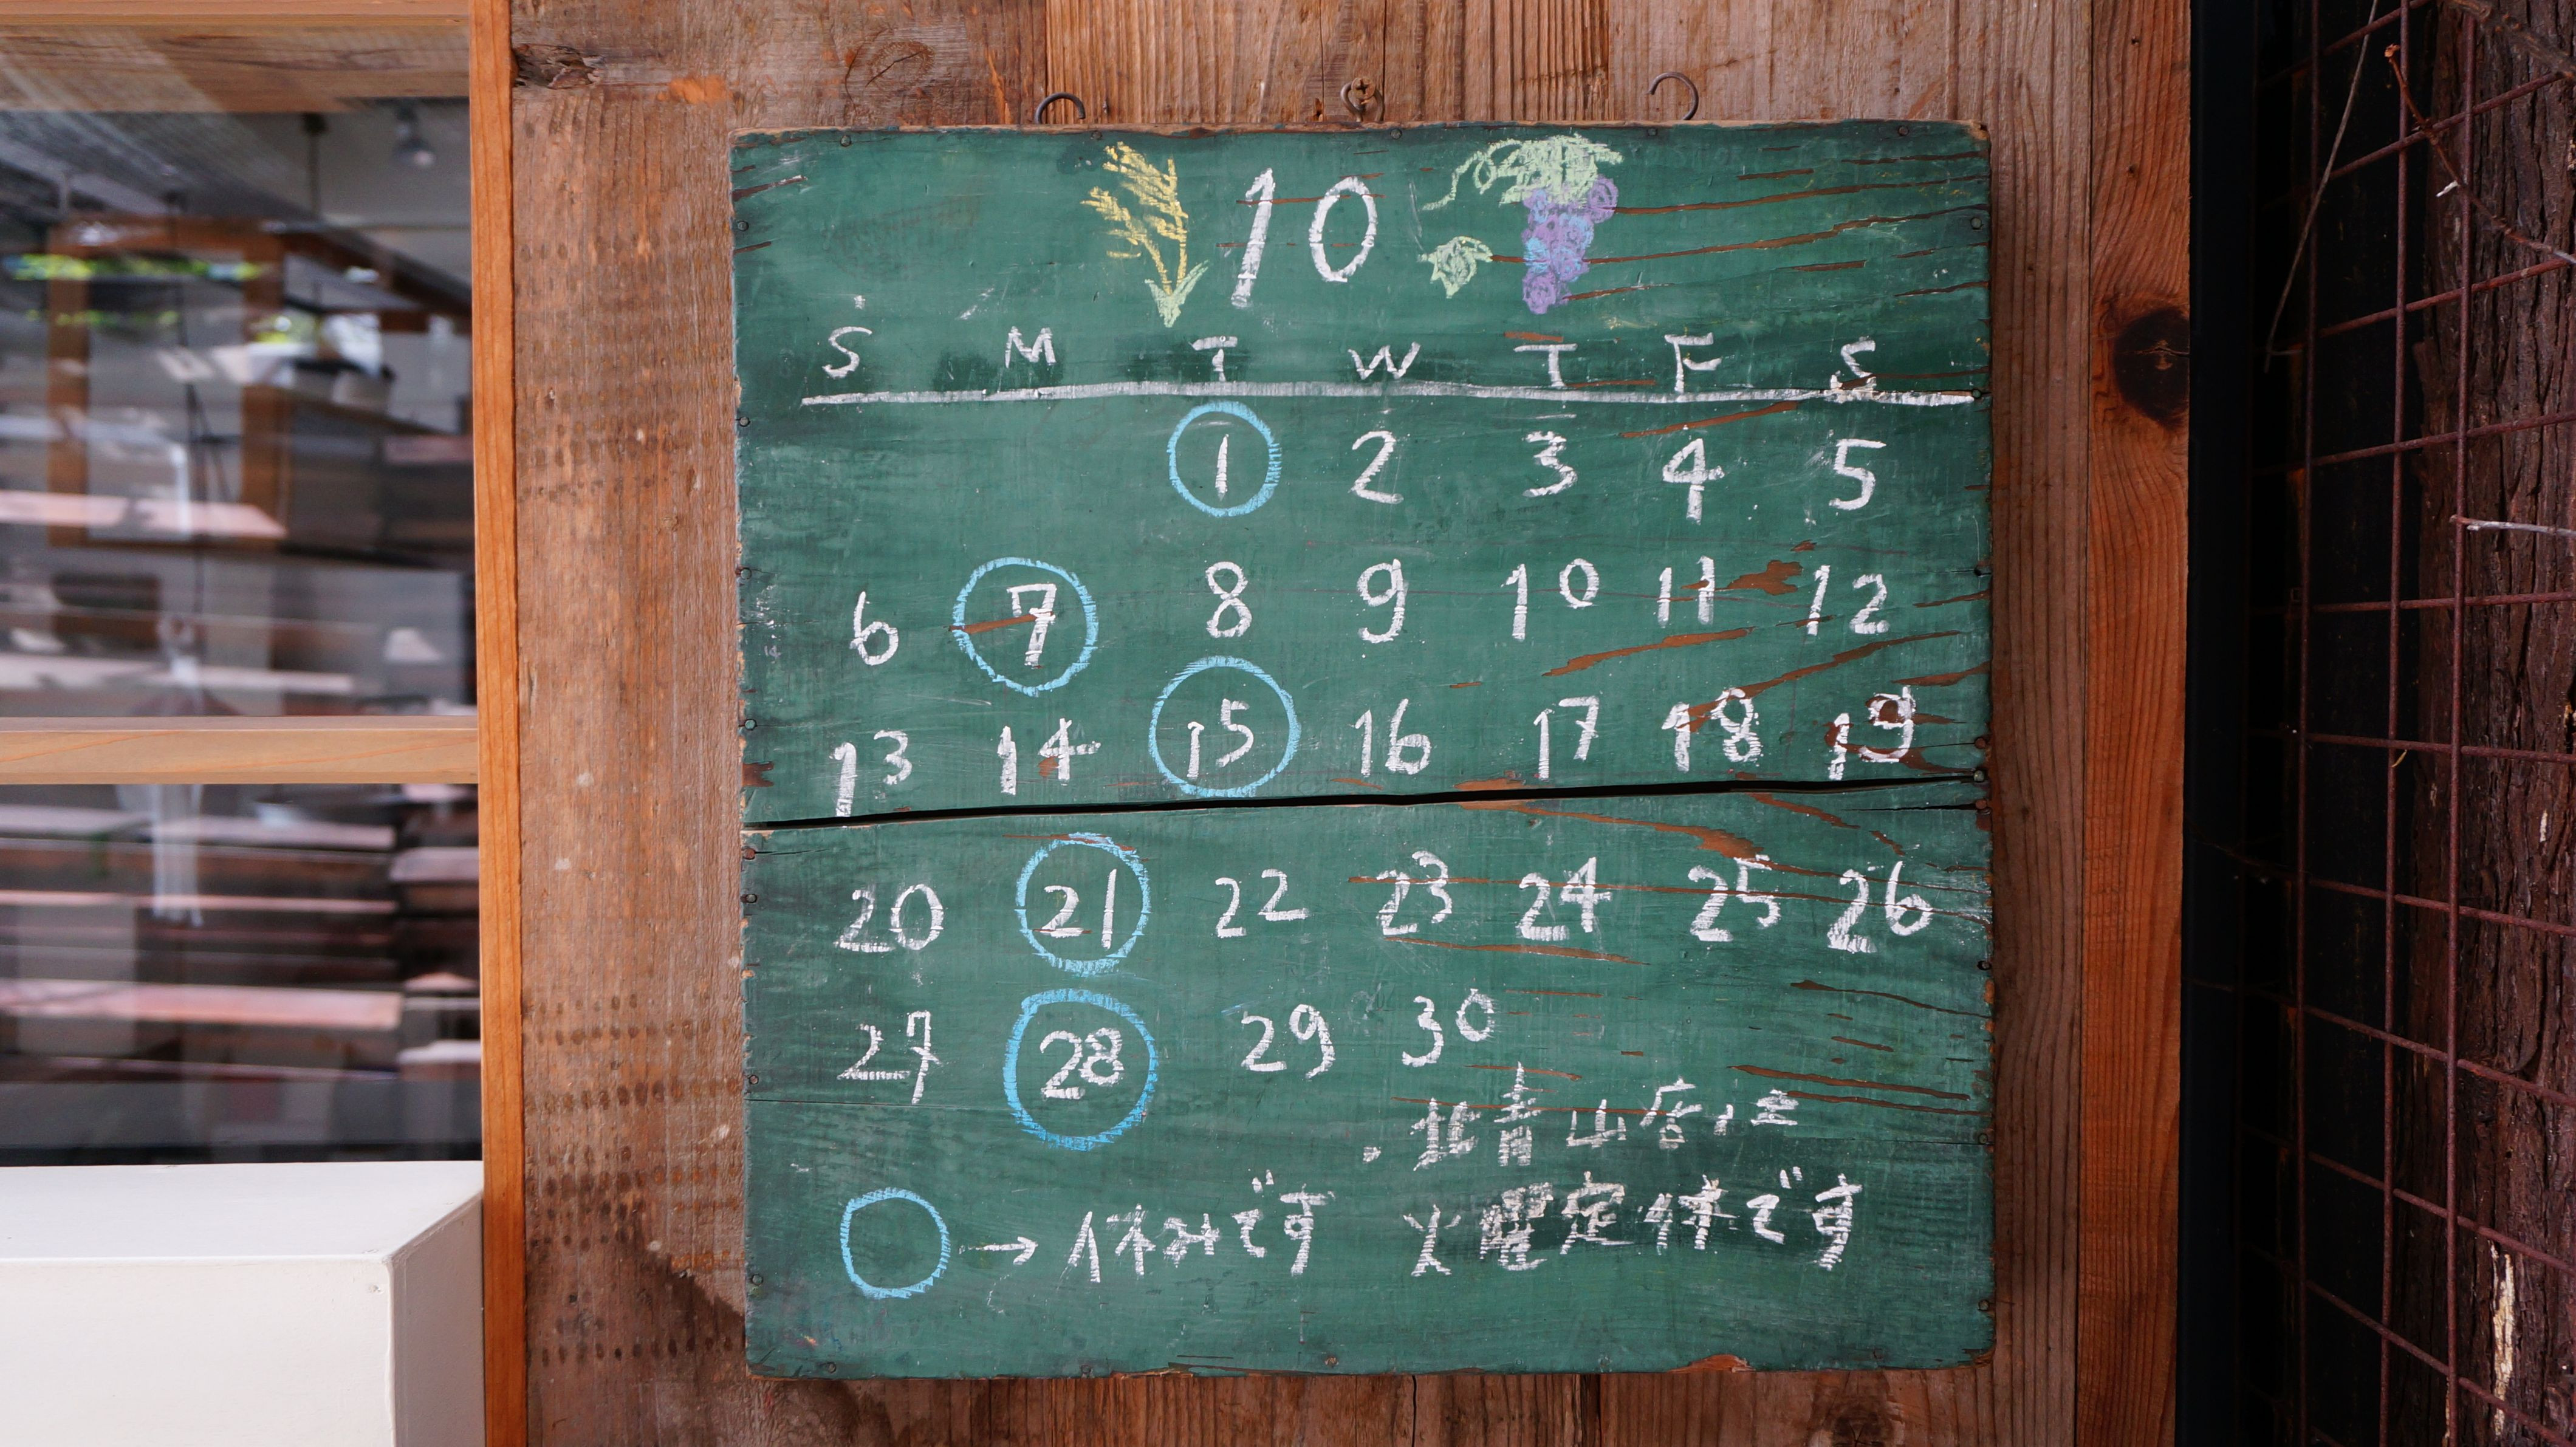 10
S M T W T F S
1 2 3 4 5
6 7 8 9 10 11 12
13 14 15 16 17 18 19
20 21 22 23 24 25 26
27 28 29 30
・北青山店は
→休みです 火曜定休です